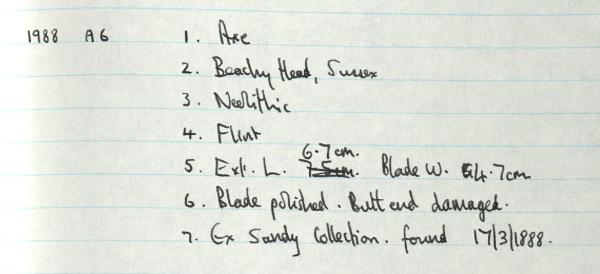 1988 A6 1. Axe
2. Beachy Head, Sussex
3. Neolithic
4. Flint
6.7cm.
5. Ext. L. 7.5cm. Blade W. 4.7cm
6. Blade polished. Butt end damaged.
7. Ex Sandy Collection. found 17/3/1888.